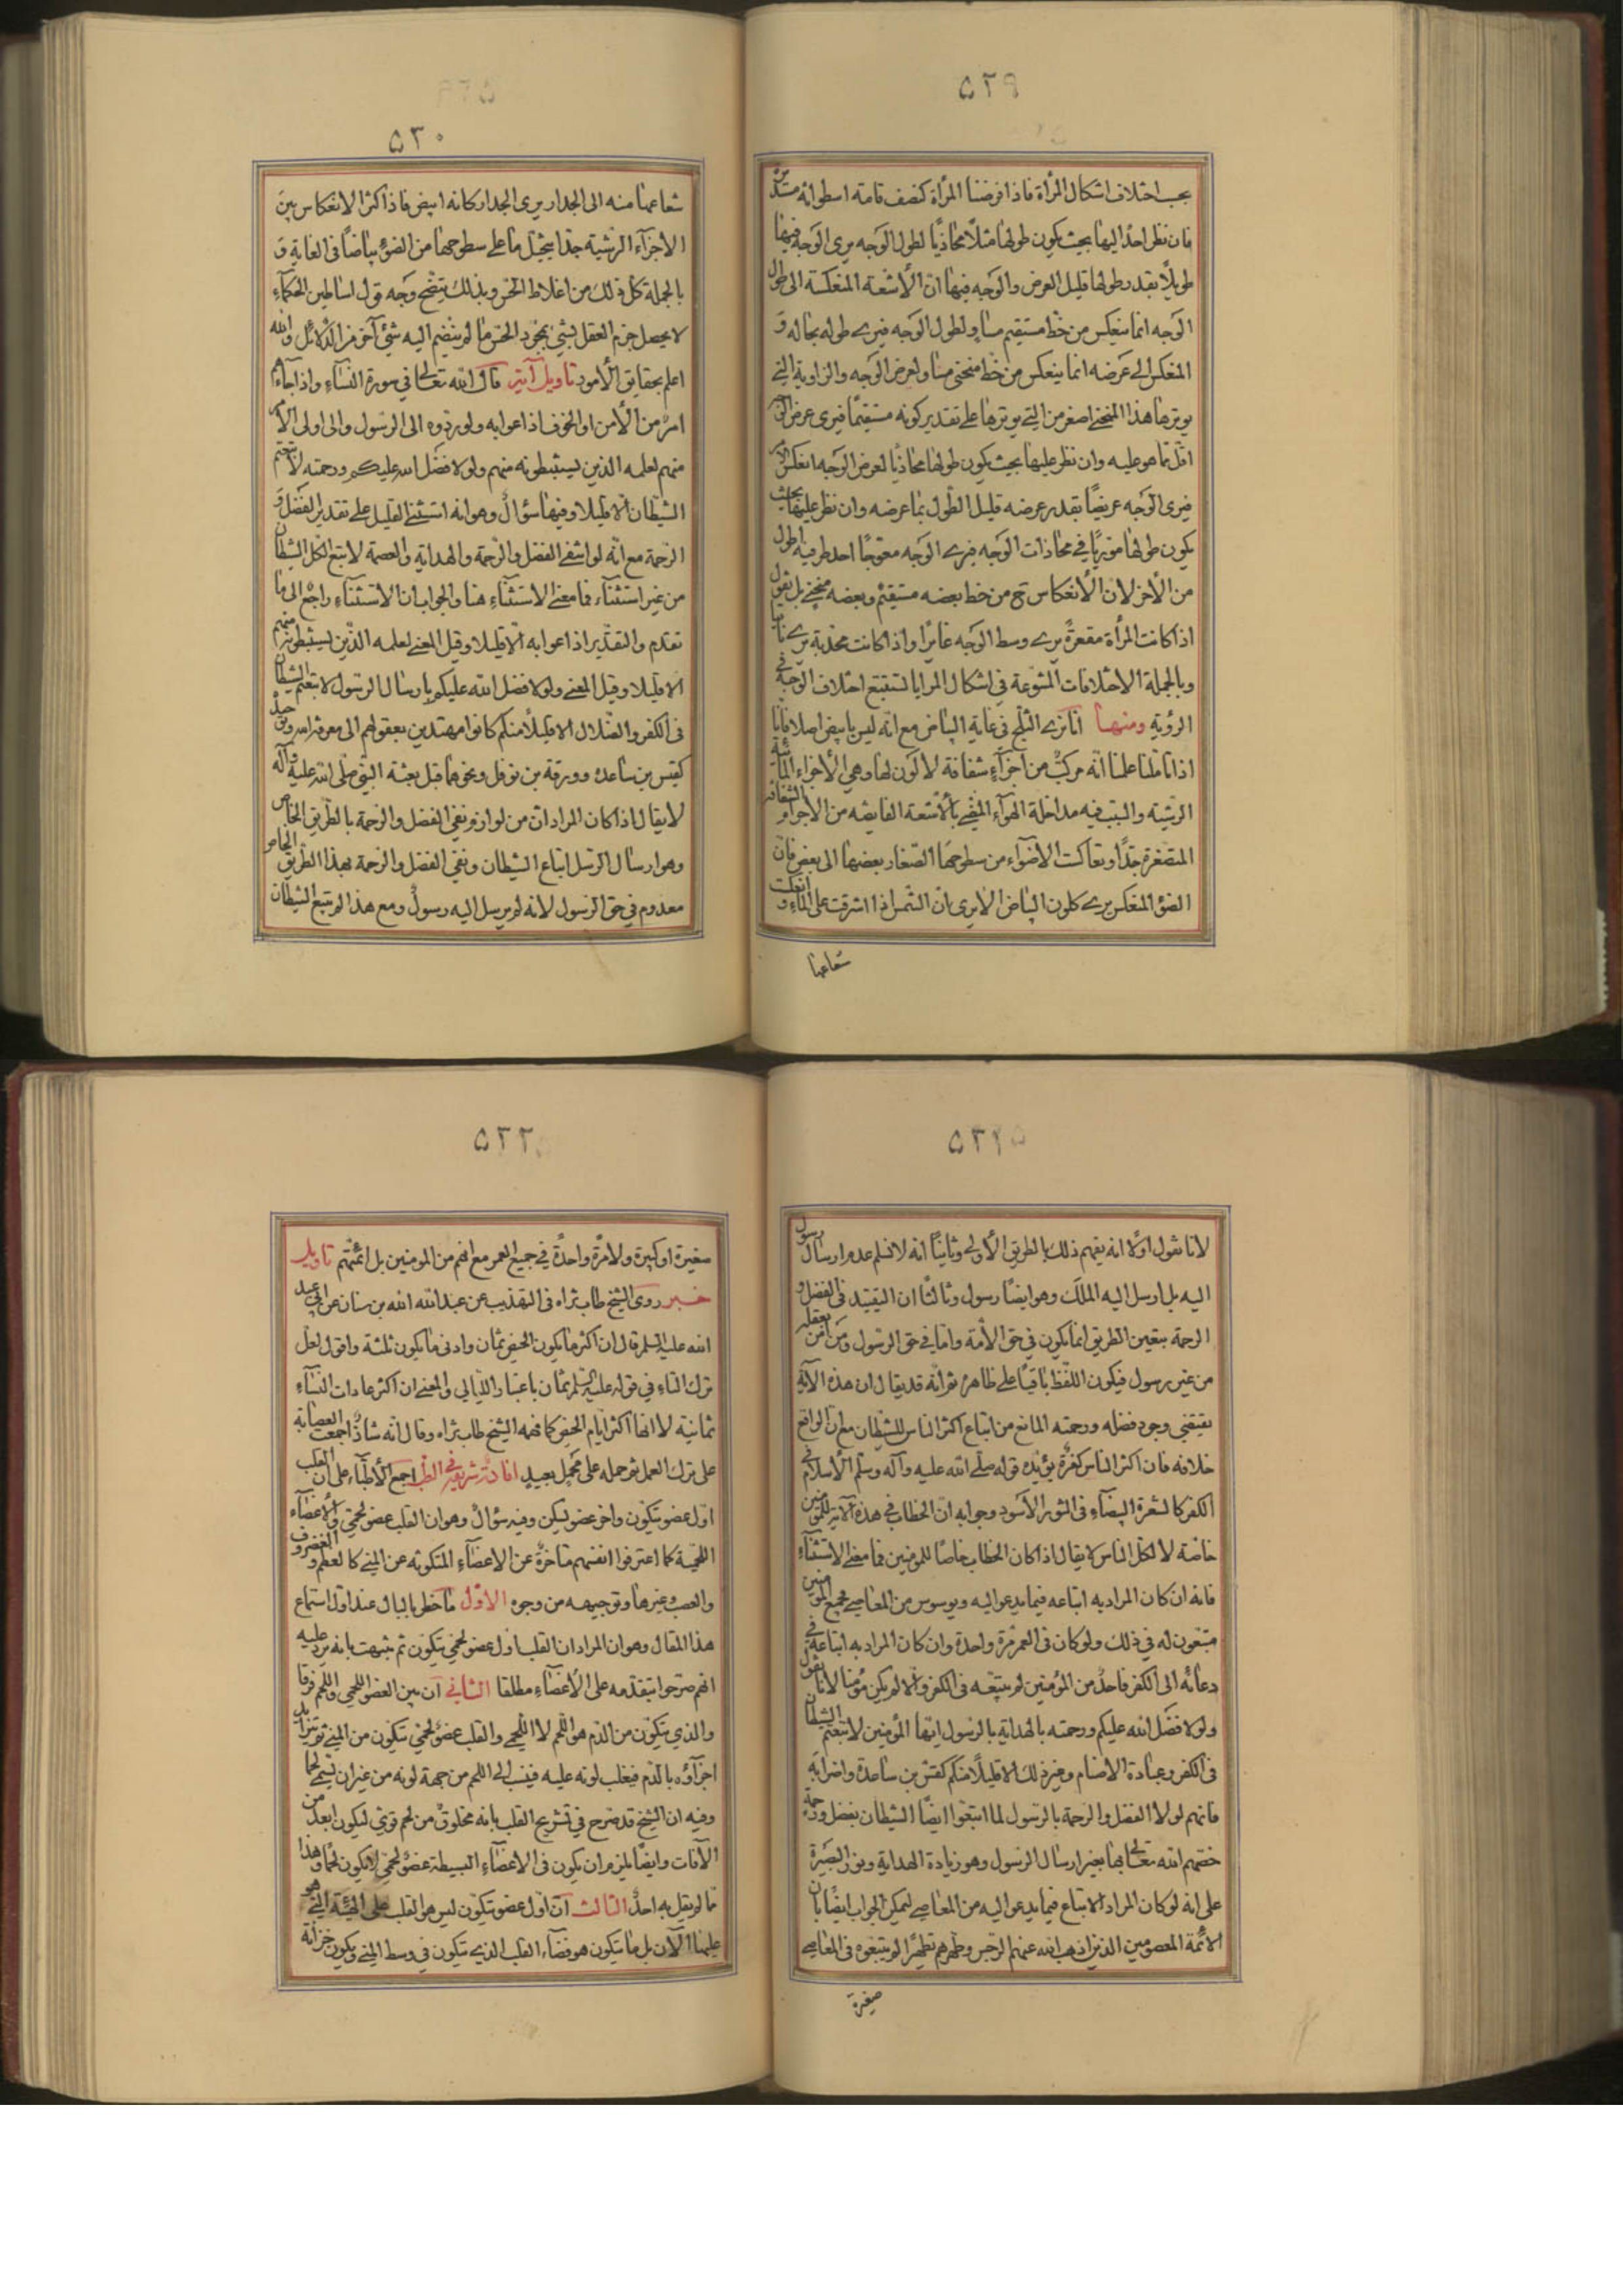 ٥٢٩
بحسب اختلاف اشكال المرأة فاذا فرضنا المرأة كنصف قامته اسطوانة مستديرة
فان نظر احد اليها بحيث يكون طولها مثلاً محاذياً لطول الوجه يرى الوجه فيها
طويلاً بقدر طولها قليل العرض والوجه فيها ان الأشعة المنعكسة الى طول
الوجه انما ينعكس من خط مستقيم مساوٍ لطول الوجه فيرى طوله بحاله و
المنعكس الى عرضه انما ينعكس من خط منحنى مساو لعرض الوجه والزاوية التي
يوترها هذا المنحنى اصغر من التي يوترها على تقدير كونه مستقيماً فيرى عرض الوجه
اقل مما هو عليه وان نظر عليها بحيث يكون طولها محاذياً لعرض الوجه انعكس الامر
فيرى الوجه عريضاً بقدر عرضه قليل الطول بما عرضه وان نظر عليها بحيث
يكون طولها مورّباً في محاذات الوجه فيرى الوجه معوّجاً احد طرفيه اطول
من الأخر لان الأنعكاس ح من خط بعضه مستقيم وبعضه منحنى بل يقول
اذا كانت المرأة مقعرةً يرى وسط الوجه غائراً واذا كانت محدبة يرى ناتياً
وبالجملة الاختلافات المتنوعة في اشكال المرايا تستتبع اختلاف الوجه في
الرؤية ومنها انا نرى الثلج في غاية البياض مع انه ليس بابيض اصلا فانا
اذا تأملنا علمنا انه مركب من اجزاءٍ شفافة لا لون لها وهي الأجزاء المائية
الرشية والسبب فيه مداخلة الهواء المضيء بالأشعة الفايضه من الاجرام الشفافة
المتصغرة جداً وتعاكست الأضواء من سطوحها الصغار بعضها الى بعض فان
الضوء المنعكس يرى كلون البياض الا يرى بان الشمس اذا اشرقت على الماء و انعكست
شعاعها
٥٣٠
شعاعها منه الى الجدار يرى الجدار كانه ابيض فاذا كثر الانعكاس بين
الأجزاء الرشية جدا يتخيل ما على سطوحها من الضوء بياضاً في الغاية و
بالجملة كل ذلك من اغلاط الحس وبذلك يتضح وجه قول اساطين الحكماء
لا يحصل جزم العقل بشئ بمجرد الحس ما لم ينضم اليه شئ آخر من الدلائل والله
اعلم بحقايق الأمور تاويل آية قال الله تعالى في سورة النساء واذا جاءهم
امر من الأمن او الخوف اذاعوا به ولو ردوه الى الرسول والى اولى الأمر
منهم لعلمه الذين يستنبطونه منهم ولولا فضل الله عليكم ورحمته لأتبعتم
الشيطان الا قليلا وفيها سؤال وهو انه استثنى القليل على تقدير الفضل و
الرحمة مع انه لو انتفى الفضل والرحمة والهداية والعصمة لاتبع الكل الشيطان
من غير استثناء فما معنى الاستثناء هنا والجواب ان الاستثناء راجع الى ما
تقدم والتقدير اذاعوا به الا قليلا وقيل المعنى لعلمه الذين يستنبطونه منهم
الا قليلا وقيل المعنى ولولا فضل الله عليكم بارسال الرسول لاتبعتم الشيطان
في الكفر والضلال الا قليلاً منكم كانوا مهتدين بعقولهم الى معرفة الله وتوحيده
كقيس بن ساعده وورقة بن نوفل ونحوهما قبل بعثة النبي صلى الله عليه وآله
لا يقال اذا كان المراد ان من لوازم نفي الفضل والرحمة بالطريق الخاص
وهو ارسال الرسل اتباع الشيطان ونفي الفضل والرحمة بهذا الطريق الخاص
معدوم في حق الرسول لانه لم يرسل اليه رسول ومع هذا لم يتبع الشيطان
٥٣١
لانا نقول اولا انه يفهم ذلك بالطريق الأولى وثانياً انه لا نسلم عدم ارسال رسول
اليه بل ارسل اليه الملك وهو ايضاً رسول وثالثاً ان التقييد في الفضل و
الرحمة بتعين الطريق انما يكون في حق الأمة واما في حق الرسول ومن آمن بعقله
من غير رسول فيكون اللفظ باقياً على ظاهره ثم انه قد يقال ان هذه الآية
يقتضي وجود فضله ورحمته المانع من اتباع اكثر الناس للشيطان مع ان الواقع
خلافه فان اكثر الناس كفرة يؤيده قوله صلى الله عليه وآله وسلم الأسلام في
الكفر كالشعرة البيضاء في الثور الأسود وجوابه ان الخطاب في هذه الآية للمؤمنين
خاصة لا لكل الناس لا يقال اذا كان الخطاب خاصا للمؤمنين فما معنى الاستثناء
فانه ان كان المراد به اتباعه فيما يدعو اليه ويوسوس من المعاصي فجميع المؤمنين
متبعون له في ذلك ولو كان في العمر مرة واحدة وان كان المراد به اتباعه في
دعائه الى الكفر فاحد من المؤمنين لم يتبعه في الكفر والا لم يكن مؤمنا لانا نقول
ولولا فضل الله عليكم ورحمته بالهداية بالرسول ايها المؤمنين لاتبعتم الشيطان
في الكفر وعبادة الاصنام وغير ذلك الا قليلاً منكم كقس بن ساعدة واضرابه
فانهم لولا الفضل والرحمة بالرسول لما اتبعوا ايضاً الشيطان بفضل ورحمة
خصهم الله تعالى بها بغير ارسال الرسول وهو زيادة الهداية ونور البصيرة
على انه لو كان المراد الاتباع فيما يدعو اليه من المعاصي ليمكن الجواب ايضاً بان
الأئمة المعصومين الذين اذهب الله عنهم الرجس وطهرهم تطهيراً لم يتبعوه في المعاصي
صغيرة
٥٣٢
صغيرة او كبيرة ولا مرةً واحدةً في جميع العمر مع انهم من المؤمنين بل ائمتهم تاويل
خبر روى الشيخ طاب ثراه في التهذيب عن عبد الله الله بن سنان عن ابي عبد
الله عليه السلم قال ان اكثر ما يكون الحيض ثمان وادنى ما يكون ثلثة واقول لعل
ترك التاء في قوله عليه السلم ثمان باعتبار الليالي والمعنى ان اكثر عادات النساء
ثمانية لا انها اكثر ايام الحيض كما فهمه الشيخ طاب ثراه وقال انه شاذ اجمعت العصابة
على ترك العمل ثم حمله على محمل بعيد افادة شريفة في الطب اجمع الأطباء على ان القلب
اول عضو يتكون واخر عضو يسكن وفيه سؤال وهو ان القلب عضو لحمي والأعضاء
اللحمية كما اعترفوا انفسهم متاخرة عن الاعضاء المتكونه عن المني كالعظم و الغضروف
والعصب وغيرها وتوجيهه من وجوه الأول ما خطر بالبال عند اول استماع
هذا المقال وهو ان المراد ان القلب اول عضو لحمي يتكون ثم تنبهت بانه يرد عليه
انهم صرحوا بتقدمه على الأعضاء مطلقا الثاني ان بين العضو اللحمي واللحم فرقا
والذي يتكون من الدم هو اللحم لا اللحمي والقلب عضو لحمي يتكون من المني ثم يتزايد
اجزاؤه بالدم فيغلب لونه عليه فينسب الى اللحم من جهة لونه من غير ان يسمى لحما
وفيه ان الشيخ قد صرح في تشريح القلب بانه مخلوق من لحم قوي ليكون ابعد من
الآفات وايضاً يلزم ان يكون في الاعضاء البسيطة عضو لحمي لا يكون لحما وهذا
مما لم يقل به احد الثالث ان اول عضو يتكون ليس هو القلب على الهيئة التي هو
عليها الآن بل ما يتكون هو فضاء القلب الذي يتكون في وسط المني ويكون خزانة